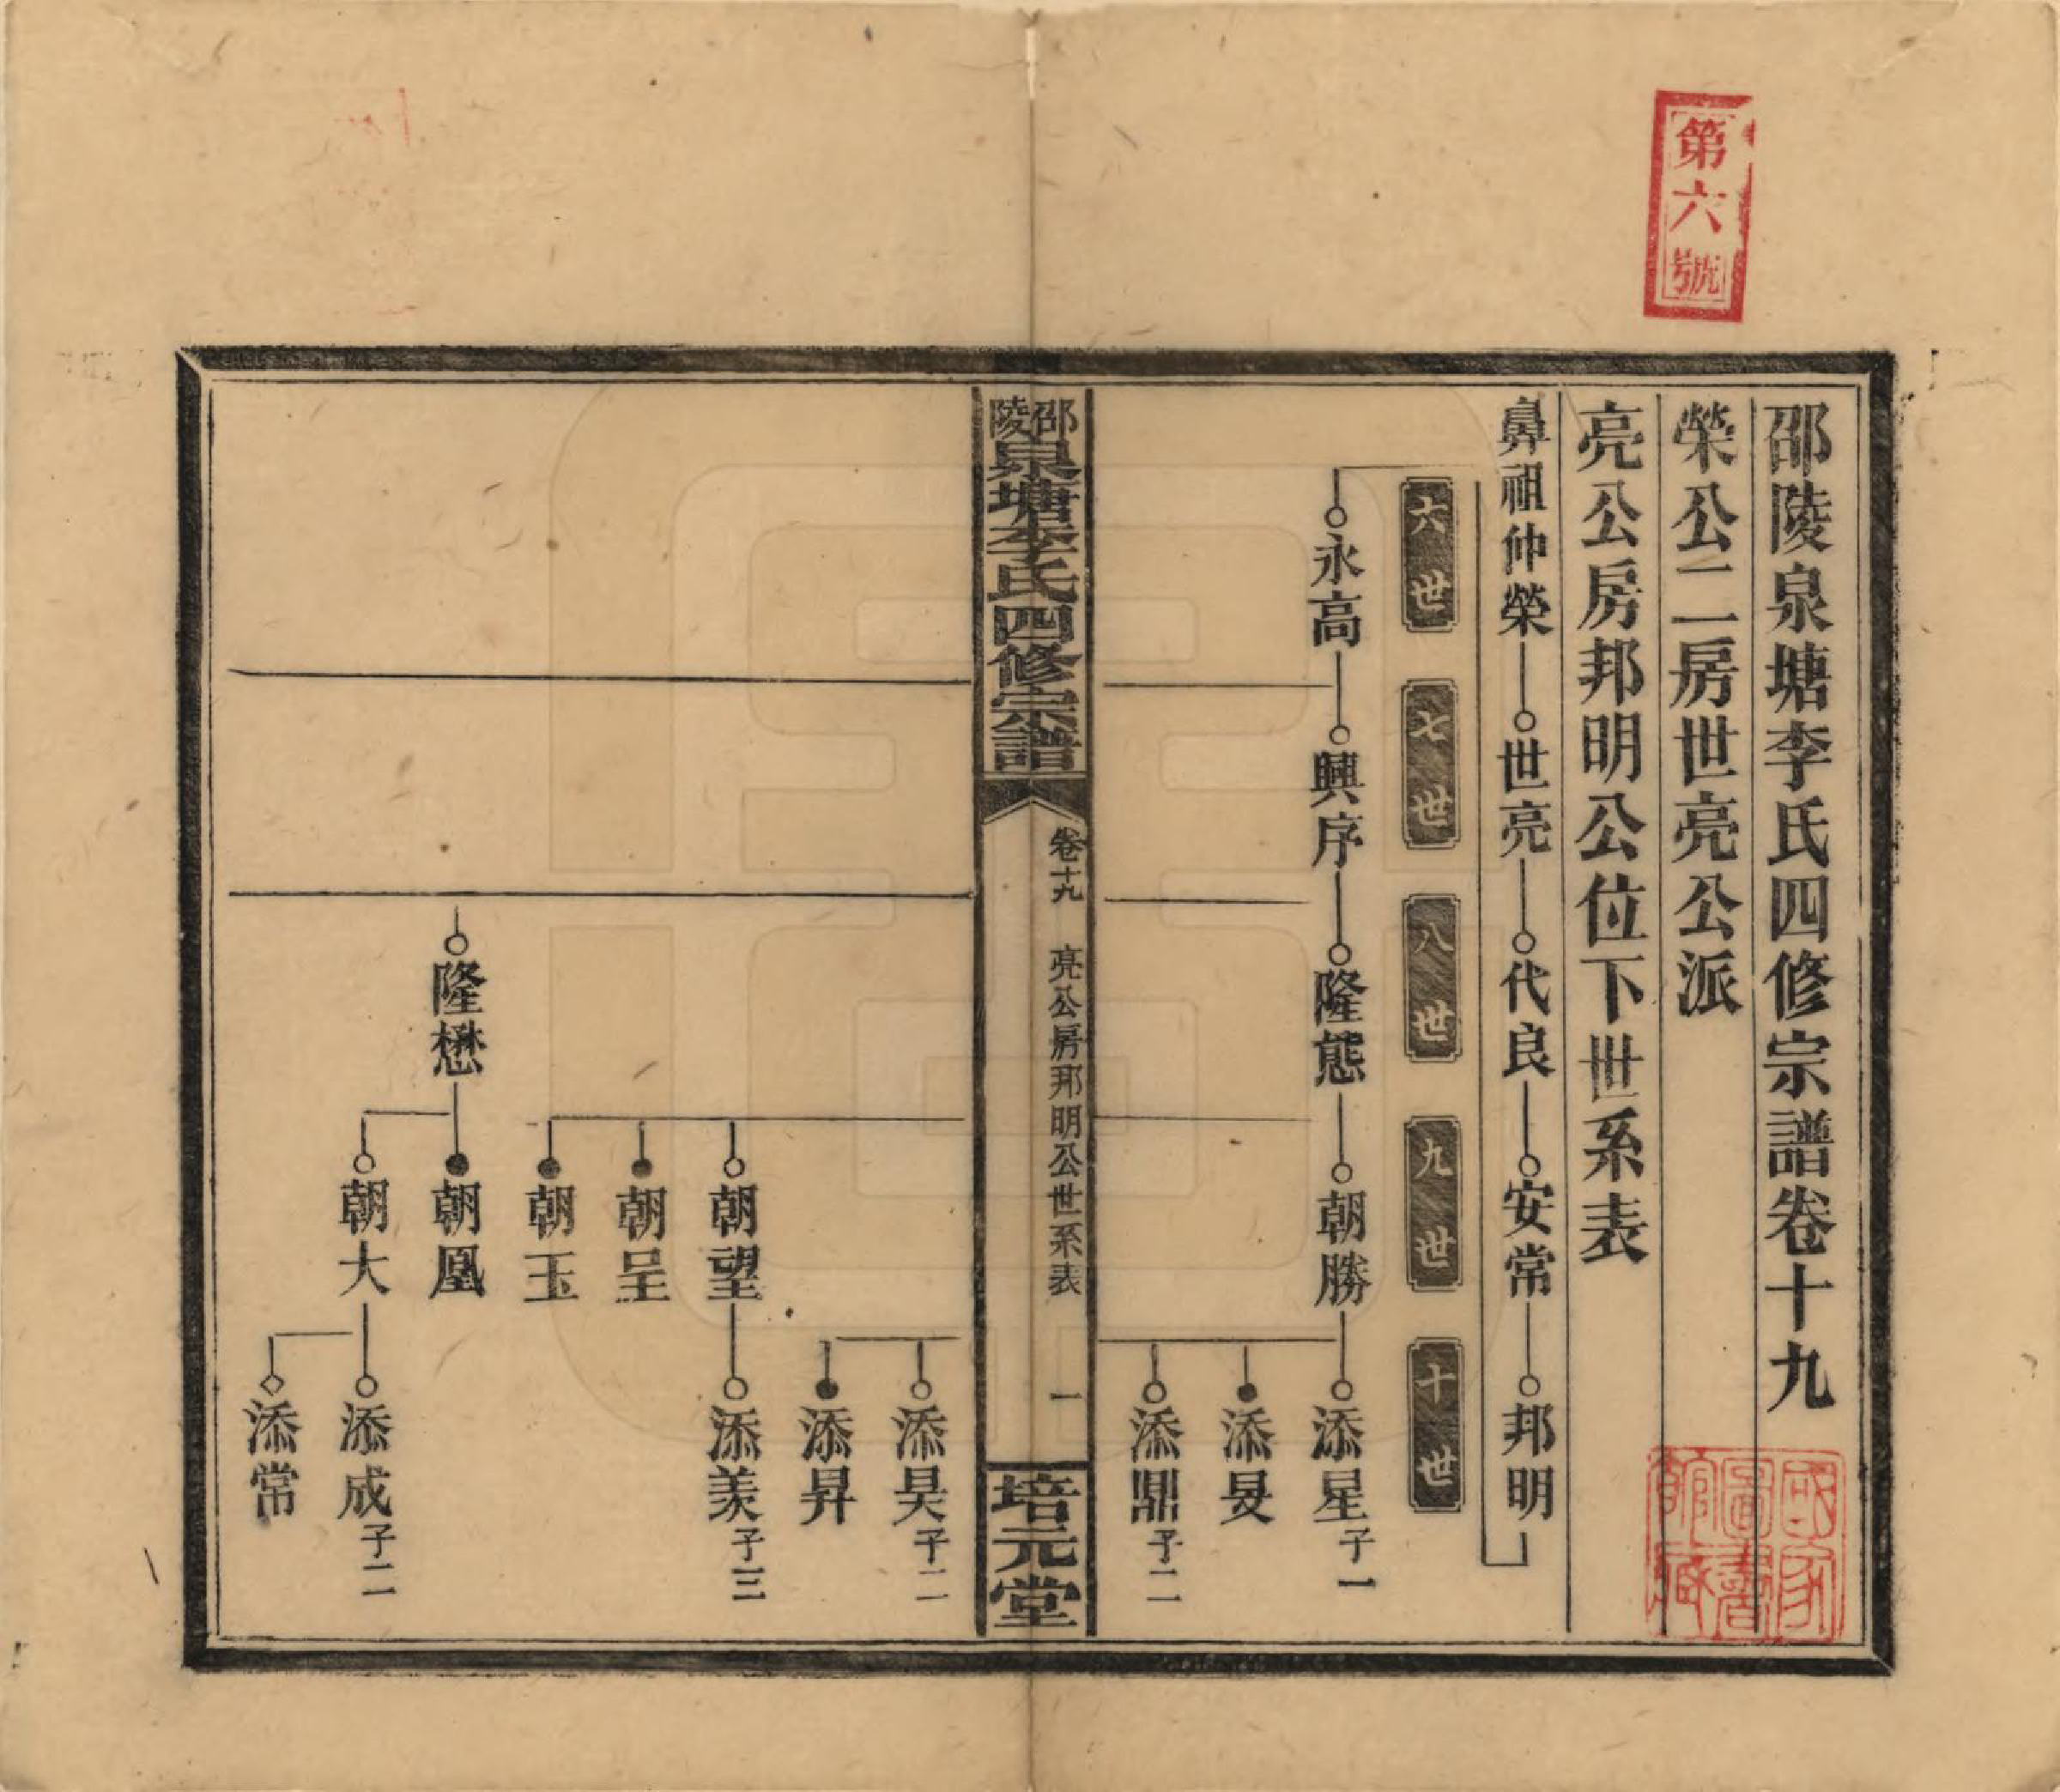 第六號
邵陵泉塘李氏四修宗譜卷十九
榮公二房世亮公派
亮公房邦明公位下世系表
鼻祖仲榮 世亮 代良 安常 邦明
六世 七世 八世 九世 十世
永高 興序 隆態 朝勝 添星 子一
添旻
添鼎 子二
邵陵泉塘李氏四修宗譜 卷十九 亮公房邦明公世系表 一 培元堂
添昊 子二
添昇
朝望 添羨 子三
朝呈
朝玉
隆懋 朝凰
朝大 添成 子二
添常
國家圖書館藏